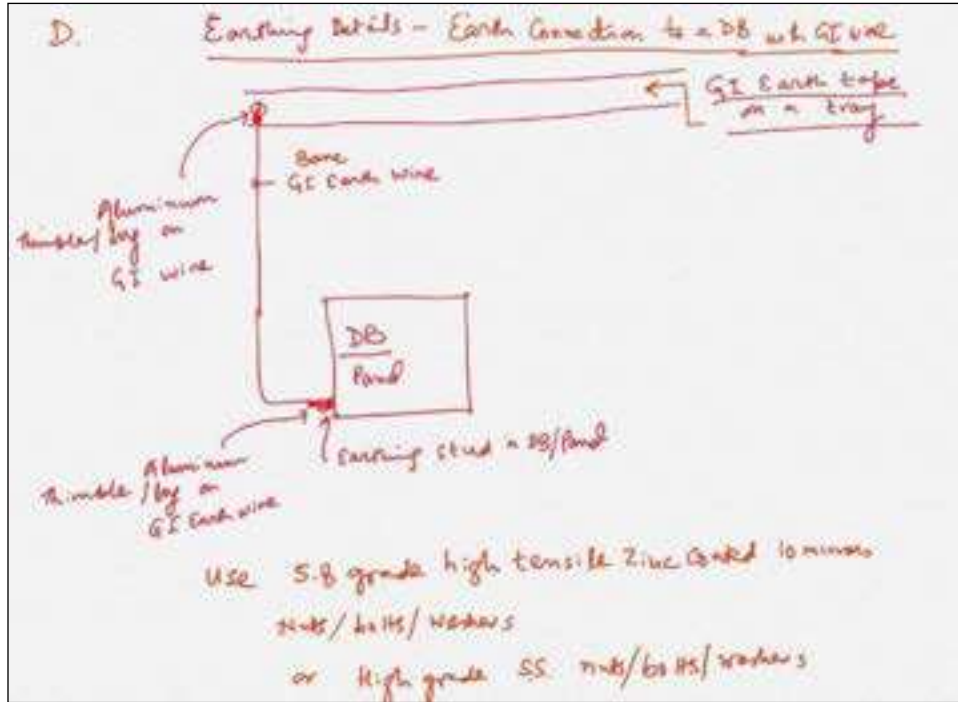 D.
Earthing Details - Earth Connection to a DB with GI wire
GI Earth tape
on a tray
Bare
GI Earth wire
Aluminium
thimble/lug on
GI wire
DB
Panel
Earthing stud DB/Panel
Aluminium
Thimble/lug on
GI Earth wire
Use 5.8 grade high tensile Zinc Coated 10
nuts/bolts/washers
or High grade SS. nuts/bolts/washers